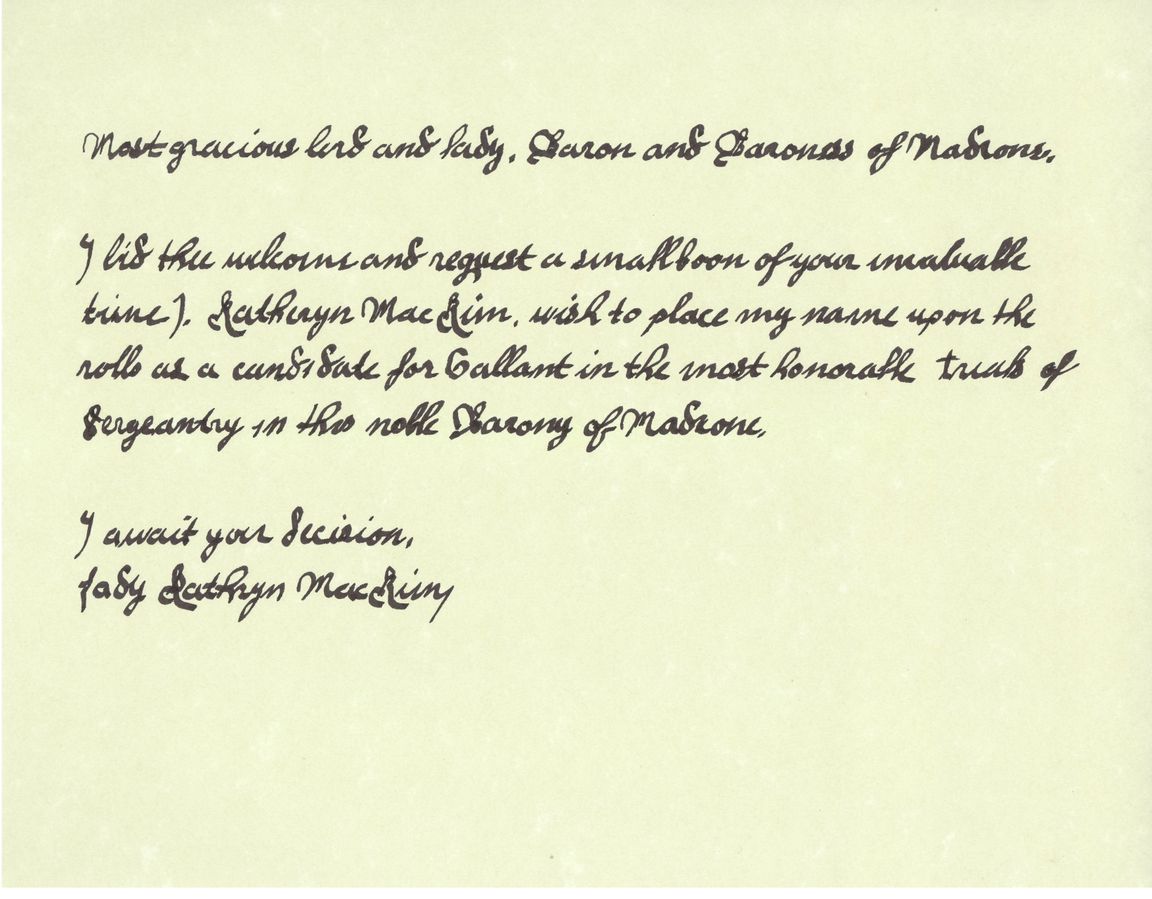 Most gracious lord and lady, Baron and Baroness of Madrone,
I bid thee welcome and request a small boon of your invaluable
time. I, Katheryn MacKim, wish to place my name upon the
rolls as a candidate for Gallant in the most honorable Trials of
Sergeantry in this noble Barony of Madrone.
I await your decision,
Lady Kathryn MacKim